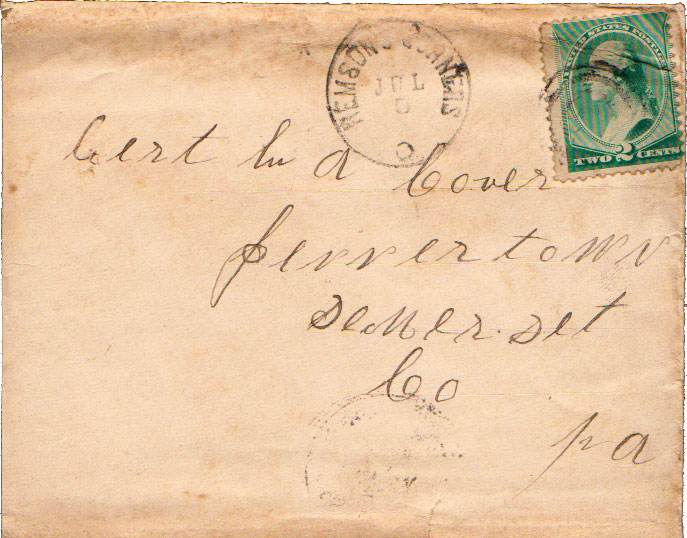 REMSON'S CORNERS
JUL
5
O
UNITED STATES POSTAGE
TWO 2 CENTS
Cover
Jennertown
Somerset
Co
Pa